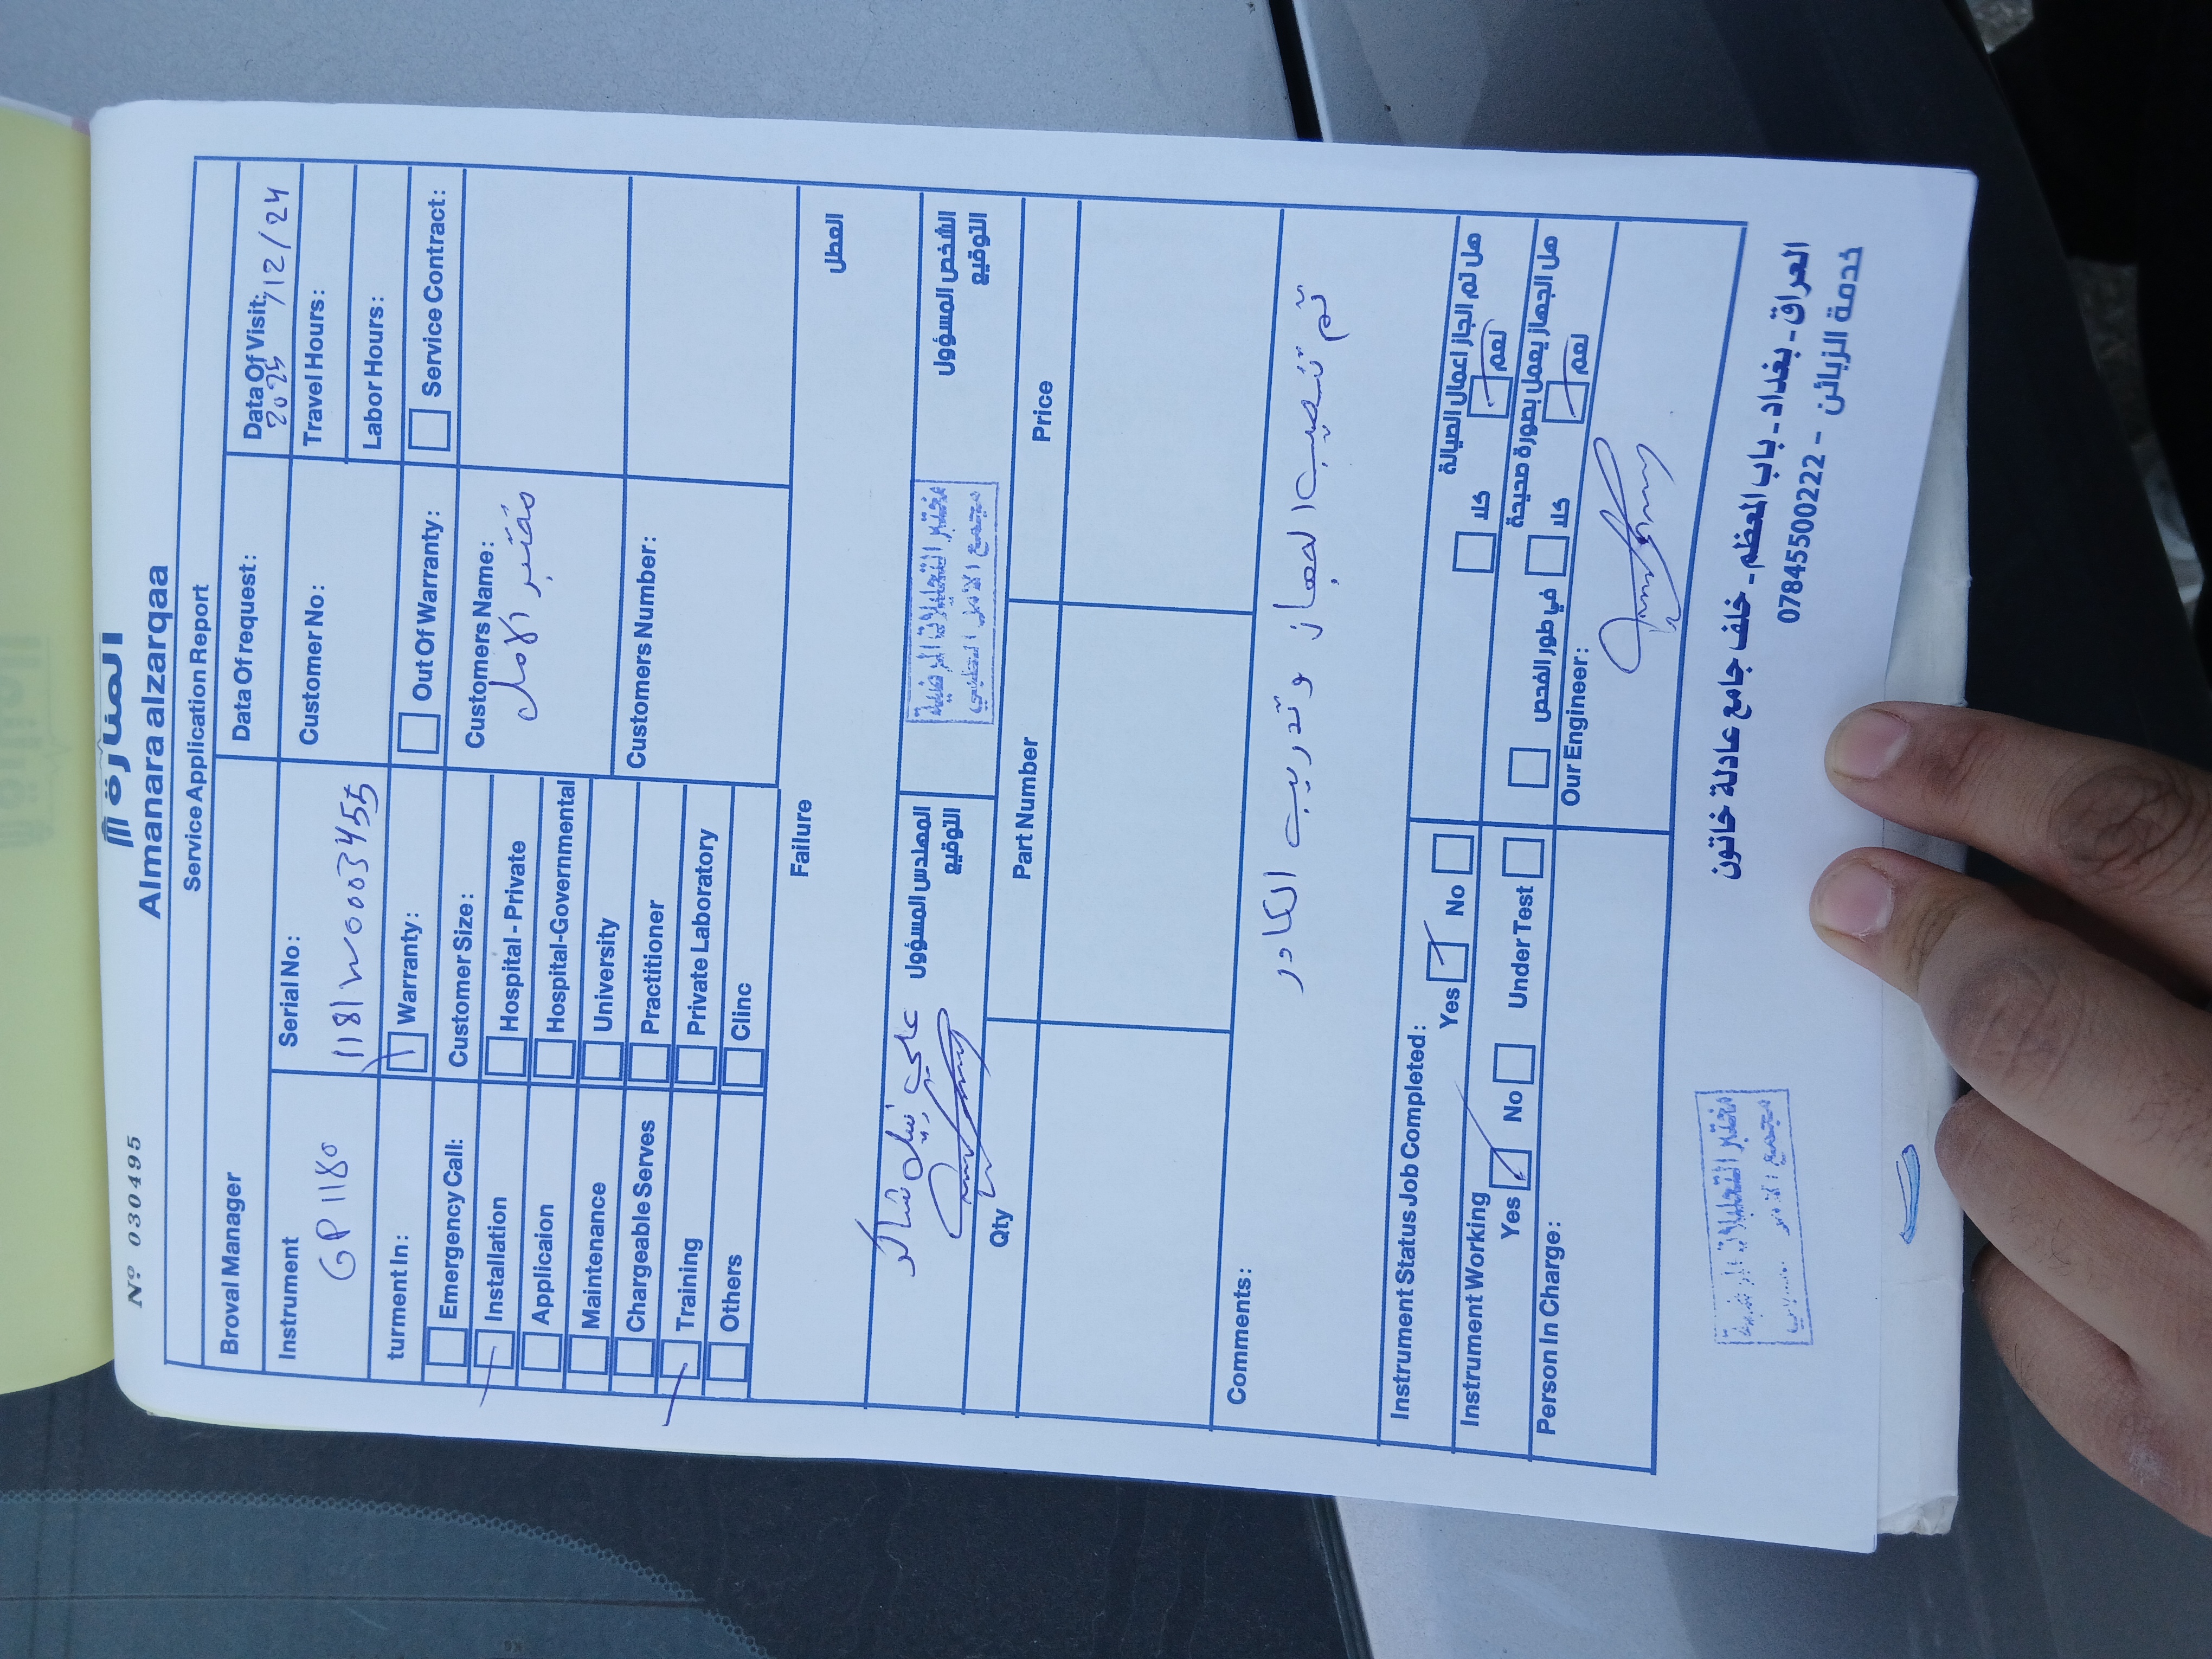 Nº 030495
المنارة
Almanara alzarqaa
Service Application Report
Broval Manager
Data Of request:
Data Of Visit:
2025/12/24
Instrument
GP 1180
Serial No:
Customer No:
Travel Hours:
Labor Hours:
turment In:
Warranty:
Out Of Warranty:
Service Contract:
Emergency Call:
Customer Size:
Customers Name:
مختبر الامل
Installation
Hospital - Private
Applicaion
Hospital-Governmental
Maintenance
University
Customers Number:
Chargeable Serves
Practitioner
Training
Private Laboratory
Others
Clinc
Failure
العطل
علي نبيل شاكر
المهندس المسؤول
التوقيع
مختبر التحليلات المرضية
مجمع الامل الطبي
الشخص المسؤول
التوقيع
Qty
Part Number
Price
Comments:
تم تنصيب الجهاز وتدريب الكادر
Instrument Status Job Completed:
Yes
No
هل تم انجاز اعمال الصيانة
كلا
نعم
Instrument Working
Yes
No
Under Test
هل الجهاز يعمل بصورة صحيحة
في طور الفحص
كلا
نعم
Person In Charge:
Our Engineer:
مختبر التحليلات المرضية
العراق - بغداد - باب المعظم - خلف جامع عادلة خاتون
خدمة الزبائن - 07845500222